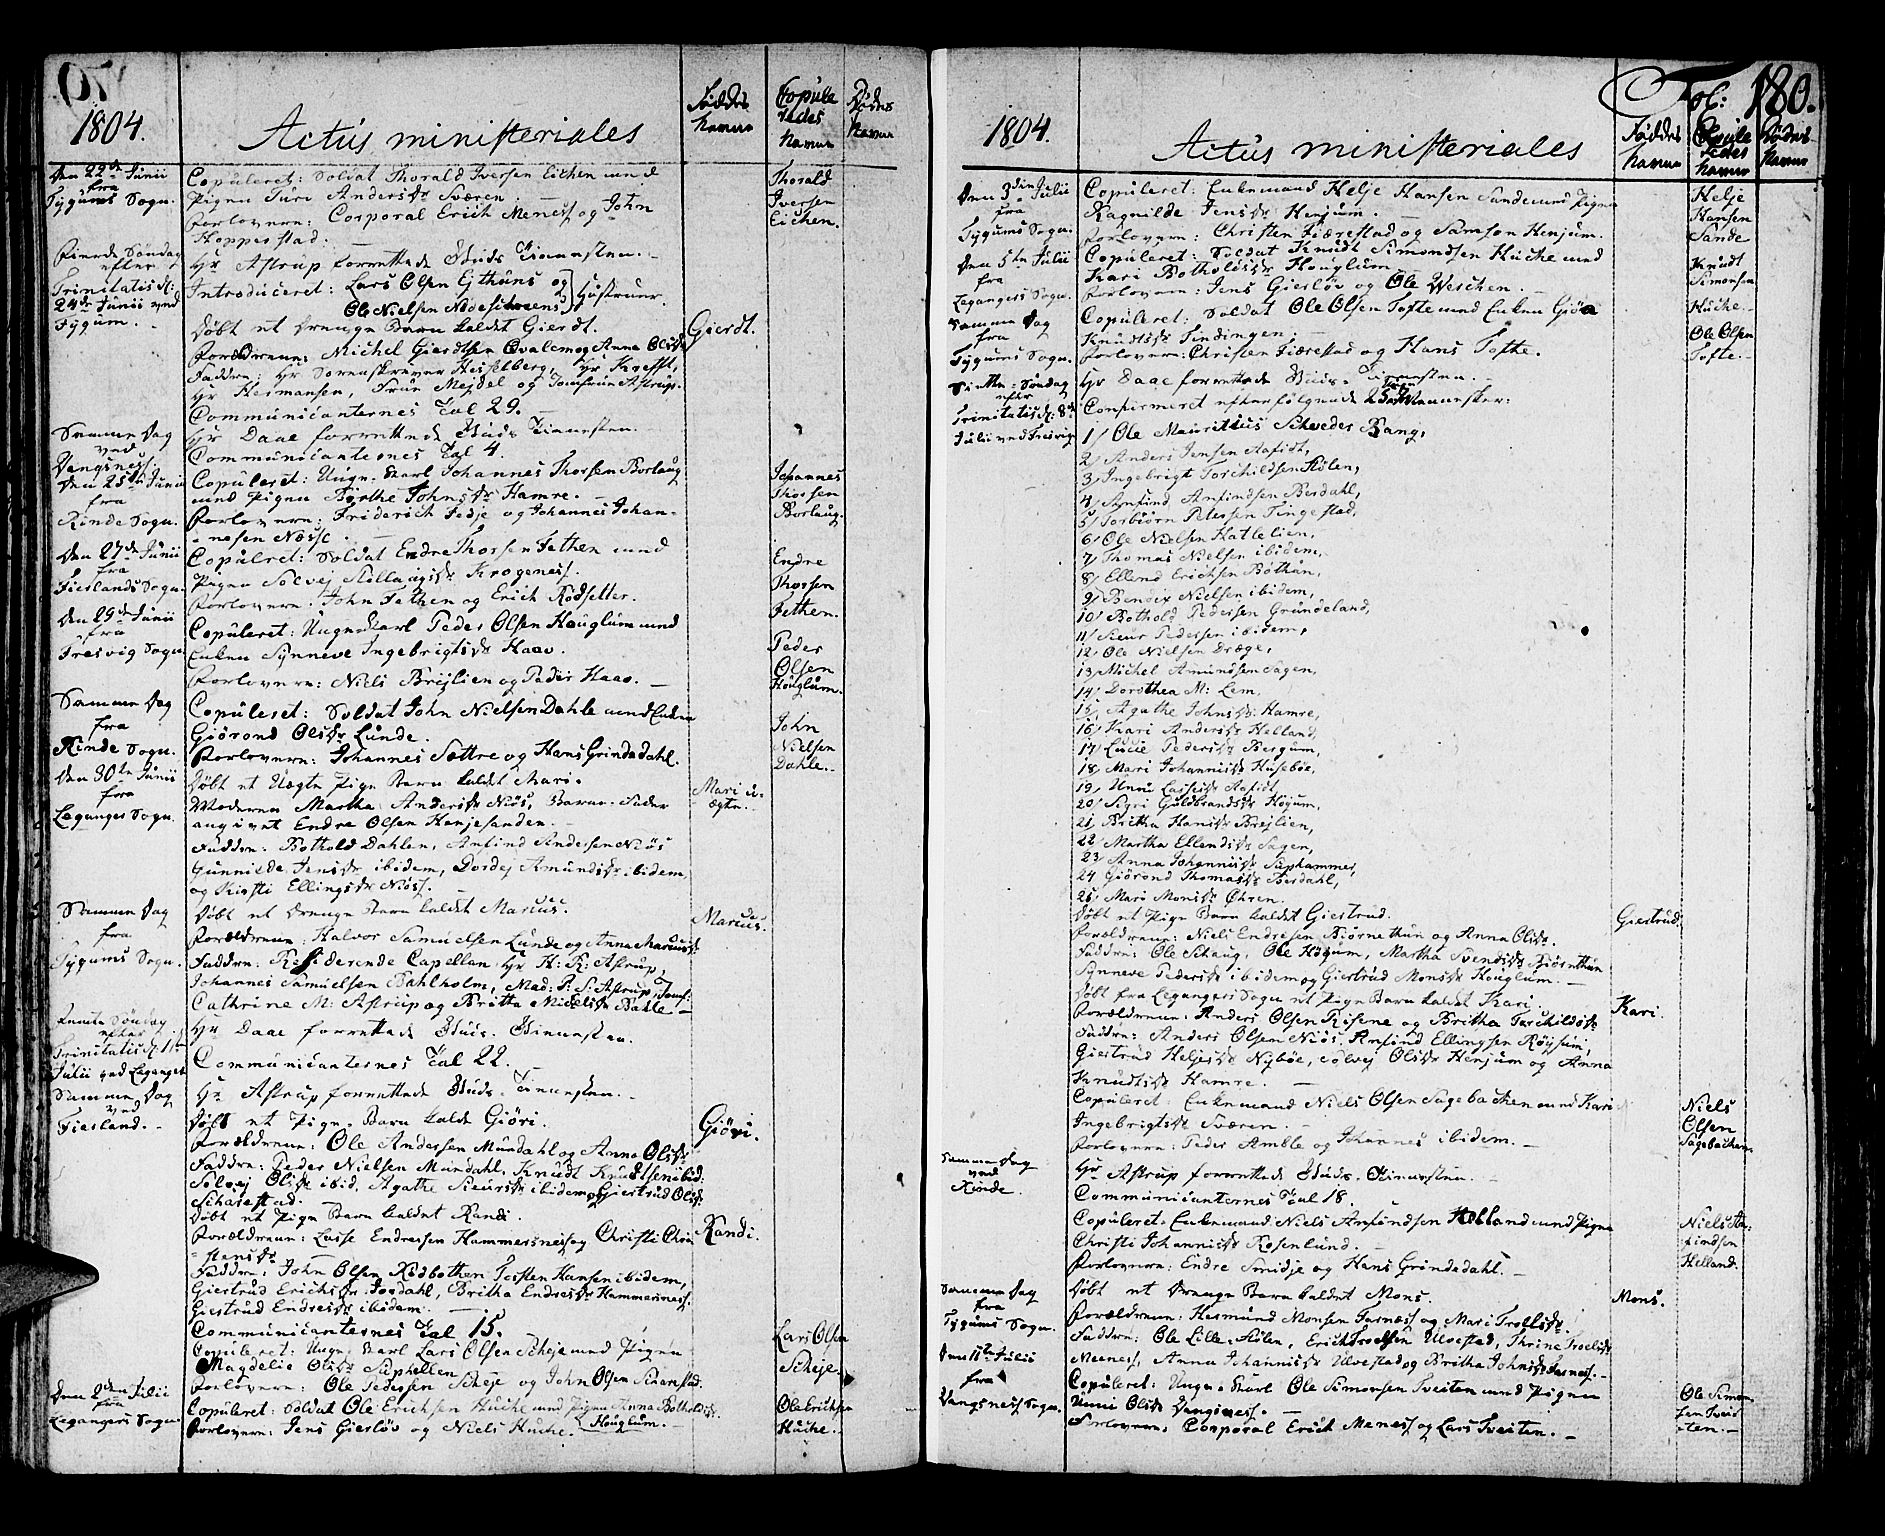 1804.
Actus ministeriales
Føddes Navne
Copule redes Navne
Dødes Navne
Den 22de Junii fra Tygums Sogn.
Copuleret: Soldat Thorald Iversen Eithen med
Pigen Turi Andersdr Sværen.
Forlovere: Corporal Erich Menes og John
Hoppestad.
Thorald Iversen Eichen.
Fierde Søndag efter Trinitatis d: 24de Junii ved Tygum.
Hr Astrup forrettede Guds Tienesten.
Introduceret: Lars Olsen Eithuns og
Ole Nielsen Nodesitrens Hustruer.
Døbt et Drenge Barn kaldet Gierdt.
Gierdt.
Forældrene: Michel Gierdtsen Qvalem og Anna Olsdr
Faddre: Hr Sorenskriver Hesselberg, Hr Krefft,
Hr Hermansen, Frue Mejdel og Jomfrue Astrup.
Communicanternes Tal 29.
Samme Dag ved Vangsness
Hr Daae forrettede Guds Tienesten.
Communicanternes Tal 4.
Den 25de Junii fra Rinde Sogn.
Copuleret: Unge Karl Johannes Thorsen Borlaug
med Pigen Birthe Johnsdr Hamre.
Forlovere: Friderich Fedje og Johannes Johan-
nesen Nesse.
Johannes Thorsen Borlaug.
Den 27de Junii fra Fieslands Sogn
Copuleret: Soldat Endre Thorsen Fethen med
Pigen Solvej Stillaugsdr Krogeness.
Forlovere: John Fethen og Erich Rødsetter.
Endre Thorsen Fethen.
Den 29de Junii fra Fresvig Sogn
Copuleret: Unge Karl Peder Olsen Houglum med
Enken Synneve Ingebrigtsdr Haav.
Forlovere: Niels Brejlien og Peder Haav.
Peder Olsen Houglum.
Samme Dag fra Rinde Sogn.
Copuleret: Soldat John Nielsen Dahle med Enken
Giørond Olsdr Lunde.
Forlovere: Johannes Settre og Hans Grindedahl.
John Nielsen Dahle.
Den 30te Junii fra Leganger Sogn
Døbt et Uægte Pige Barn kaldet Mari.
Mari u-ægte.
Moderen Martha Andersdr Niøs, Barne-Fader
angivet Endre Olsen Henjesanden.
Faddre: Bothold Dahlen, Anfind Andersen Niøs
Gunnilde Jensdr ibidem, Dordej Amundsdr ibidem
og Kirsti Ellingsdr Niøs.
Samme Dag fra Tygums Sogn.
Døbt et Drenge Barn kaldet Marcus.
Marcus.
Forældrene: Halvor Samuelsen Lunde og Anna Marcusdr
Faddre: Residerende Capellan Hr H: R: Astrup,
Johannes Samuelsen Bahlholm, Mad: F: S: Astrup, Jomf:
Cathrine M: Astrup og Britta Nicelsdr Bahle
Femte Søndag efter Trinitatis d: 1te Julii ved Leganger
Hr Daae forrettede Guds Tienesten.
Communicanternes Tal 22.
Samme Dag ved Fiesland.
Hr Astrup forrettede Guds Tienesten.
Døbt et Pige Barn kaldt Giøri.
Giøri.
Forældrene: Ole Andersen Mundahl og Anna Olsdr
Faddre: Peder Nielsen Mundahl, Knudt Knudtsen ibid:
Solvej Olsdr ibid, Agathe Sieursdr ibidem og Giertrud Olsdr
Scharestad.
Døbt et Pige Barn kaldet Randi.
Randi.
Forældrene: Lasse Endresen Hammersnes og Christi Chri-
stensdr
Faddre: John Olsen Rødbotten, Torsten Hansen ibidem,
Giertrud Erichsdr Jordahl, Britha Endresdr Hammersnes,
Giertrud Endresdr ibidem.
Communicanternes Tal 15.
Copuleret: Unge Karl Lars Olsen Scheje med Pigen
Magdelie Olsdr Suphellen
Forlovere: Ole Pedersen Scheje og John Olsen Scharestad.
Lars Olsen Scheje.
Den 2den Julii fra Legangers Sogn
Copuleret: Soldat Ole Erichsen Huche med Pigen Anna Botholdsdr
Houglum.
Forlovere: Jens Gierløv og Niels Huche.
Ole Erichsen Huche.
Fol: 180.
1804.
Actus ministeriales
Føddes Navne
Copuleredes Navne
Dødes Navne
Den 3die Julii fra Tygums Sogn.
Copuleret: Enkemand Helje Hansen Sande med Pigen
Ragnilde Jensdr Henjum.
Forlovere: Christen Fiærestad og Samson Henjum.
Helje Hansen Sande
Den 5te Julii fra Legangers Sogn.
Copuleret: Soldat Knudt Simondsen Huche med
Kari Botholdsdr Houglum.
Forlovere: Jens Gierløv og Ole Weschen.
Knudt Simonsen Huche.
Samme Dag fra Tygums Sogn.
Copuleret: Soldat Ole Olsen Tofte med Enken Giøa
Knudtsdr Tindingen.
Forlovere: Christen Fiærestad og Hans Tofte.
Ole Olsen Tofte.
Siette Søndag efter Trinitatis d: 8de Julii ved Fresvig
Hr Daae forrettede Guds-Tienesten.
Confirmeret efterfølgende 25 unge Mennesker:
1/ Ole Mauritius Schveder Rang,
2/ Anders Jensen Aafidt,
3/ Ingebrigt Torchildsen Stølen,
4/ Anfind Anfindsen Berdahl,
5/ Torbiørn Petersen Tingestad,
6/ Ole Nielsen Hatlelien,
7/ Thomas Nielsen ibidem,
8/ Ellend Erichsen Bøthun,
9/ Bendix Nielsen ibidem,
10/ Bothold Pedersen Grundeland,
11/ Sieur Pedersen ibidem,
12/ Ole Nielsen Dræge,
13/ Michel Amundsen Sagen,
14/ Dorothea M: Lem,
15/ Agathe Johnsdr Hamre,
16/ Kari Andersdr Helland,
17/ Lucie Pedersdr Bergum,
18/ Mari Johannisdr Husebøe,
19/ Unni Lassesdr Aafidt,
20/ Sigri Guldbrandsdr Høgum,
21/ Britha Hansdr Brejlien,
22/ Martha Ellendsdr Sagen,
23/ Anna Johannisdr Suphammer,
24/ Giørond Thomasdr Berdahl,
25/ Mari Monsdr Øhren.
Døbt et Pige Barn kaldet Giertrud.
Giertrud.
Forældrene: Niels Endresen Biørnethun og Anna Olsdr.
Faddre: Ole Schaug, Ole Høgum, Martha Svendsdr Biørnthun
Synneve Pedersdr ibidem og Giertrud Monsdr Houglum.
Døbt fra Legangers Sogn et Pige Barn kaldet Kari.
Kari.
Forældrene: Anders Olsen Risene og Britha Torchildsdr
Faddre: Anders Olsen Niøs, Anfind Ellingsen Røysum,
Giertrud Heljesdr Nybøe, Solvej Olsdr Henjum og Anna
Knudtsdr Hamre.
Copuleret: Enkemand Niels Olsen Sagebachen med Kari
Ingebrigtsdr Sværen.
Forlovere: Peder Amble og Johannes ibidem.
Niels Olsen Sagebachen
Samme Dag ved Rinde.
Hr Astrup forrettede Guds-Tienesten.
Communicanternes Tal 18.
Copuleret: Enkemand Niels Anfindsen Helland med Pigen
Christi Johannisdr Rosenlund.
Forlovere: Endre Smidje og Hans Grindedahl.
Niels An-findsen Helland.
Samme Dag fra Tygums Sogn.
Døbt et Drenge Barn kaldet Mons.
Mons.
Forældrene: Hermund Monsen Farness og Mari Trollsdr.
Faddre: Ole Lille-Stølen, Erich Troelsen Ulvestad, Thrine Troelsdr
Meeness, Anna Johannisdr Ulvestad og Britha Johnsdr Farness.
Den 11te Julii fra Vangsness Sogn.
Copuleret: Unge Karl Ole Simonsen Tveiten med Pigen
Unni Olsdr Vangsness.
Forlovere: Corporal Erich Meness og Lars Tveiten.
Ole Simon-sen Tvei-ten.